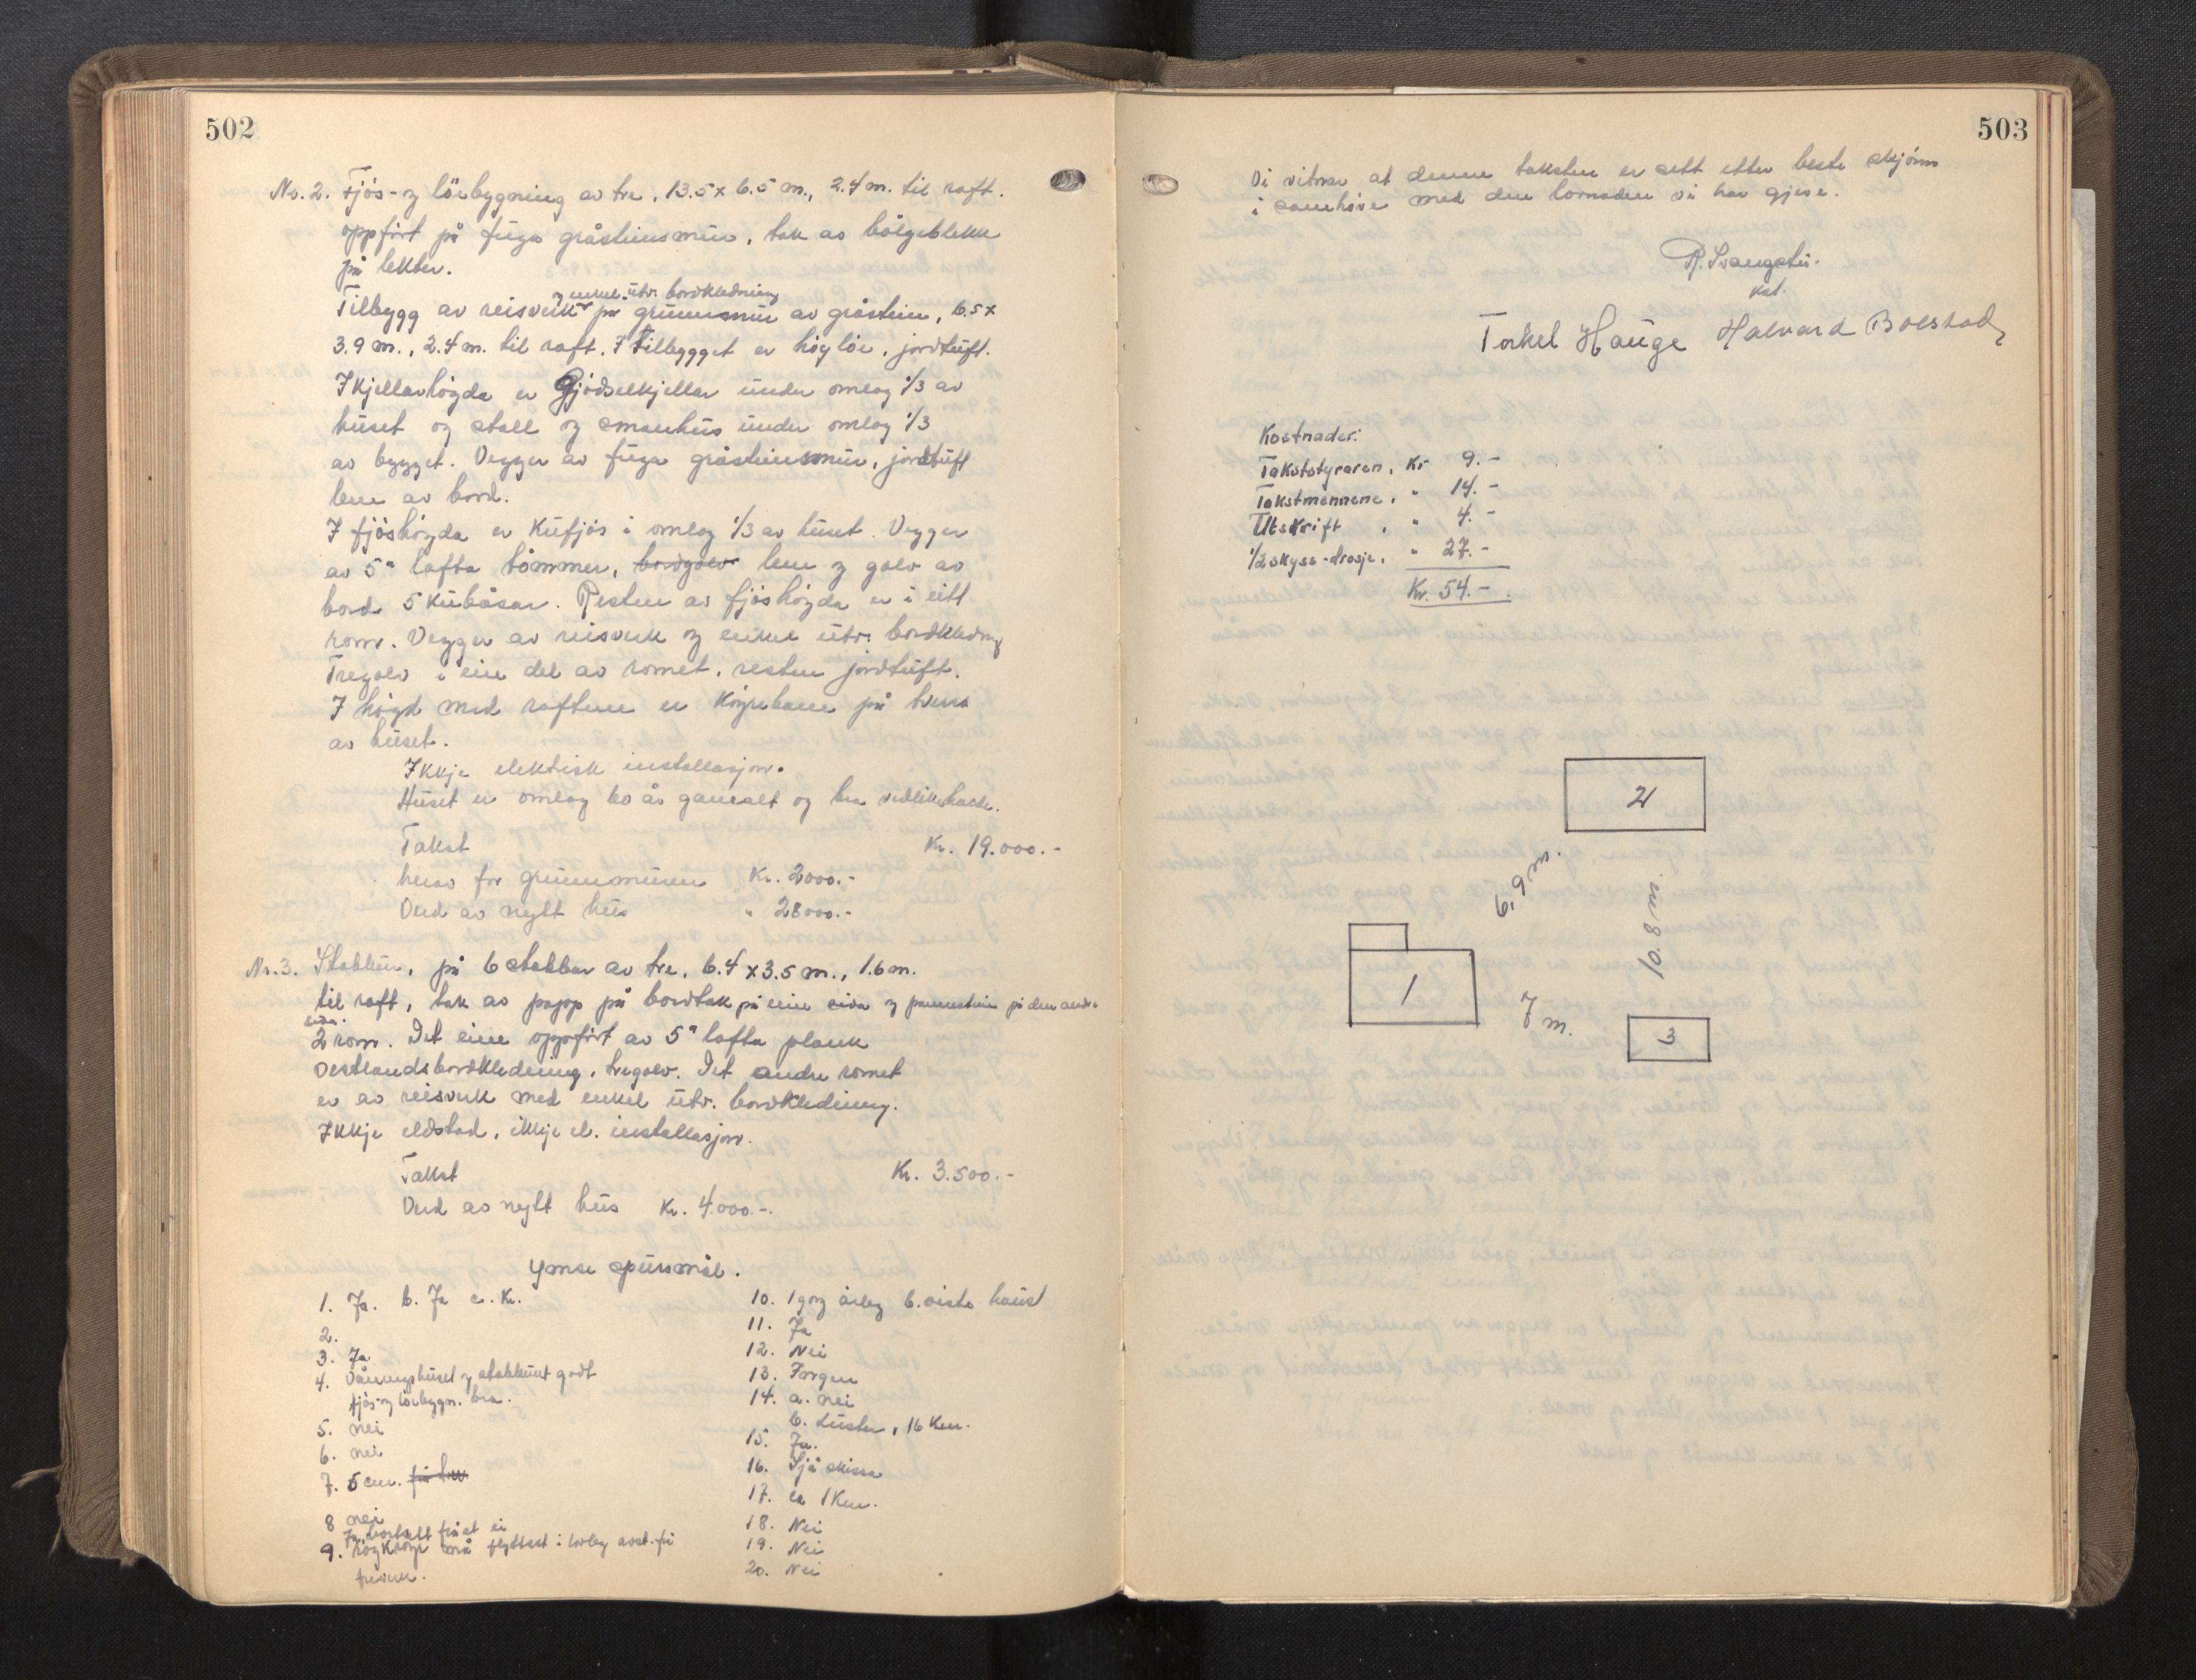 502
No. 2. Fjós- og löebygning av tre, 13.5 x 6.5 m., 2.4 m. til raft.
oppfört på fuga gråsteinsmur, tak av bölgeblekk
på lekter.
og enkel utv. bordkledning
Tilbygg av reisverk på grunnmur av gråstein, 6.5 x
3.9 m., 2.4 m. til raft. I tilbygget er höyløe, jordtuft.
I kjellarhögda er gjödselkjellar under omlag 1/3 av
huset og stall og smauhus under omlag 1/3
av bygget. Vegger av fuga gråsteinsmur, jordtuft
lem av bord.
I fjöshögda er kufjós i omlag 1/3 av huset. Vegger
av 5" lafta tömmer, bordgolv lem og golv av
bord. 5 kubåsar. Resten av fjöshögda er i eitt
rom. Vegger av reisverk og enkel utv. bordkledning
Tregolv i ein del av romet, resten jordtuft.
I högd med raftene er köyrebane på tvers
av huset.
Ikkje elektrisk installasjon.
Huset er omlag 60 år gamalt og bra vedlikehalde.
Takst Kr. 19.000.-
herav for grunnmuren Kr. 2000.-
Verd av nytt hus " 28000.-
No. 3. Stabbur, på 6 stabbar av tre, 6.4 x 3.5 m., 1.6 m.
til raft, tak av papp på bordtak på eine sida og pannestein på den andre
sida.
2 rom. Det eine oppfört av 5" lafta plank
Vestlandsbordkledning, tregolv. Det andre romet
er av reisverk med enkel utv. bordkledning.
Ikkje eldstad, ikkje el. installasjon.
Takst Kr. 3.500.-
Verd av nytt hus Kr. 4.000.-
Ymse spursmål.
1. Ja. b. Ja c. Kr.
2.
3. Ja
4. Våningshuset og stabburet godt
fjós- og löebygn. bra.
5. nei
6. nei
7. 5 cm.
8 nei
9.
10. 1 gong årleg b. siste haust
11. Ja
12. Nei
13. Ingen
14. a. nei
b. Luster, 16 km.
15. Ja.
16. Sjå skissa
17. ca 1 km.
18. Nei
19. Nei
20. Nei
503
Vi vitnar at denne taksten er sett etter beste skjönn
i samhöve med den lovnaden vi har gjeve.
Torkel Hauge Halvard Bolstad
Kostnader:
Takststyraren, Kr 9.-
Takstmennene, " 14.-
Utskrift , " 4.-
1/2 skyss-drosje, " 27.-
Kr. 54.-
2
6,9 m.
10.8 m.
1
7 m.
3